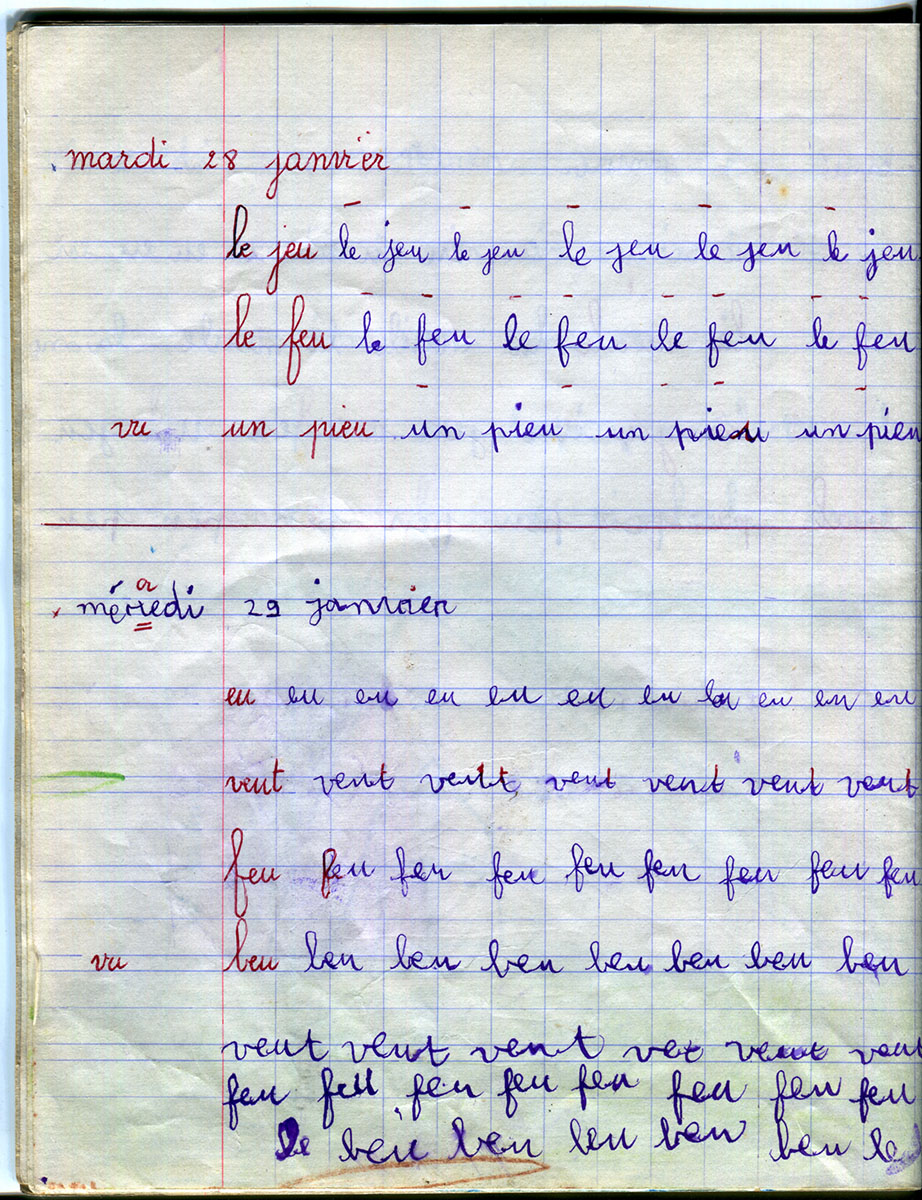 mardi 28 janvier
le jeu le jeu le jeu le jeu le jeu le jeu
le feu le feu le feu le feu le feu
vu un pieu un pieu un pieu un pieu
a
mérredi 29 janvier
eu eu eu eu eu eu eu eu eu eu
veut veut veut veut veut veut veut
feu feu feu feu feu feu feu feu feu
vu beu beu beu beu beu beu beu beu
veut veut veut veu veut veut
feu feu feu feu feu feu feu feu
le beu beu beu beu beu